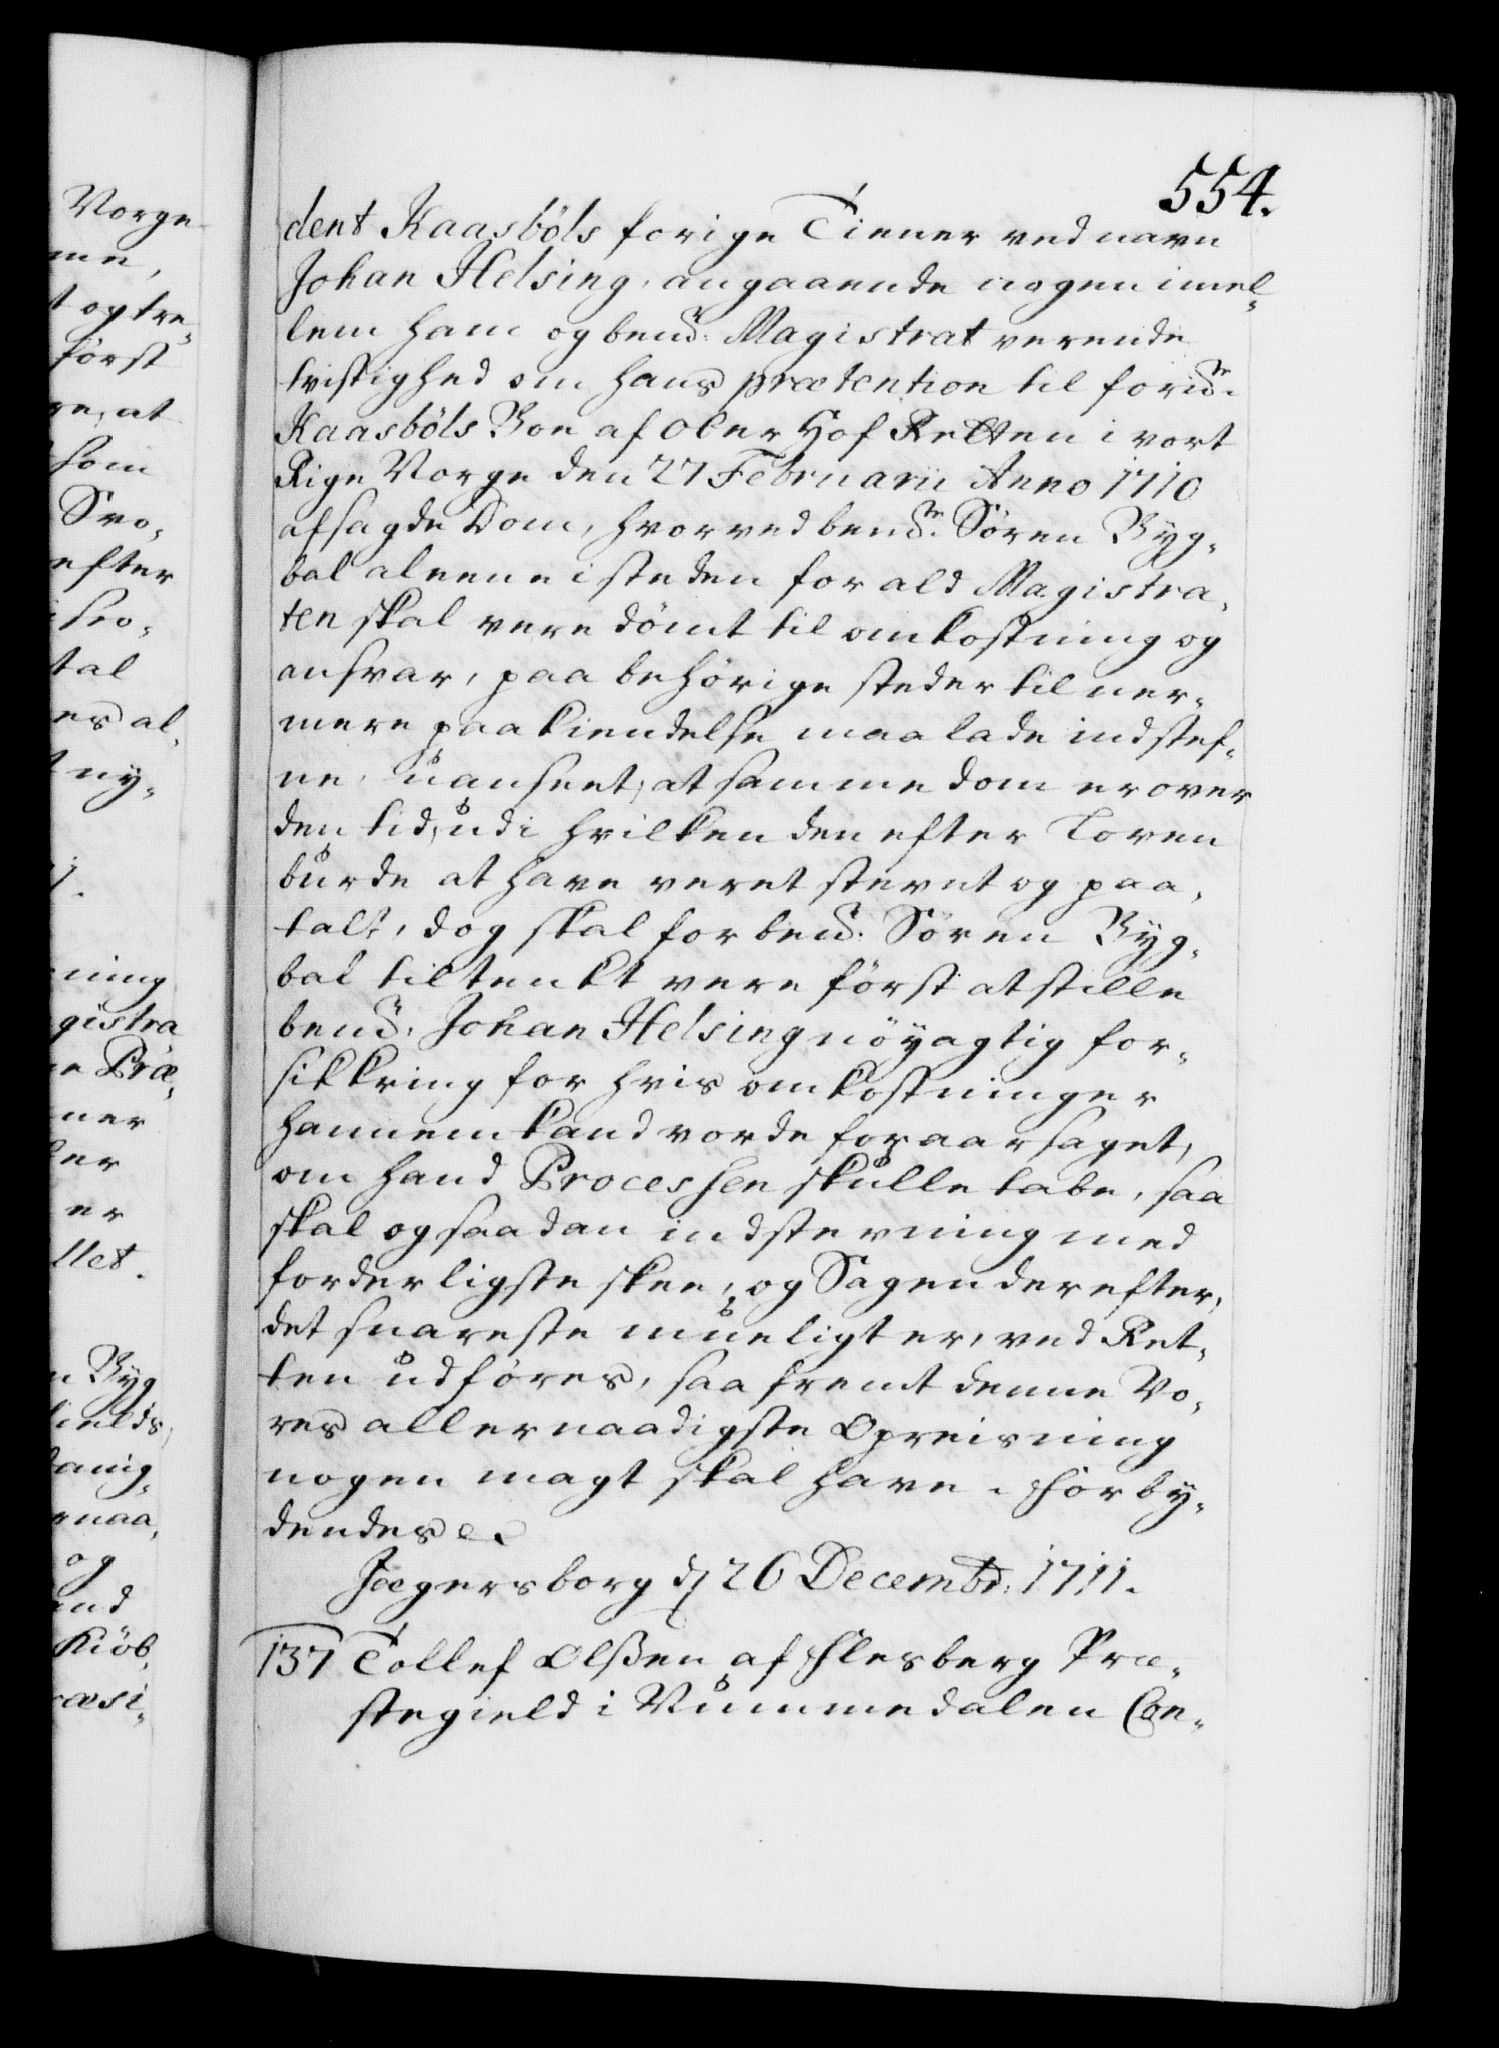 554.
dent Kaasböls forige Tiener ved navn
Johan Helsing, angaaende nogen imel-
lem ham og bemt: Magistrat verende
tvistighed om hans prætention til forn:
Kaasböls Boe af Ober Hof Retten i vort
Rige Norge den 27 Februarii Anno 1710
afsagde Dom, hvorved bemte: Sören Byg-
bal aleene i steden for ald Magistra-
ten skal vere dömt til omkostning og
ansvar, paa behörige steder til ner-
mere paakiendelse maa lade indstef-
ne, uanseet, at samme dom er over
den tid, udi hvilken den efter Loven
burde at have veret stevnt og paa-
talt, dog skal forbemt: Sören Byg-
bal tiltenkt vere först at stille
bemte: Johan Helsing nöyagtig for-
sikkring for hvis omkostninger
hannem kand vorde foraarsaget,
om hand Processen skulle tabe, saa
skal og saadan indstevning med
forderligste skee, og Sagen derefter,
det snareste mueligt er, ved Ret-
ten udföres, saafremt denne Vo-
res allernaadigste Opreisning
nogen magt skal have. Forby-
dendes e.
Jægersborg d 26 Decembr: 1711.
137 Tollef Olßen af Flesberg Præ-
stegield i Nummedalen Con-
Norge
t og tre-
först
re, at
som
Svo-
efter
tal
es al-
ny-
ning
gistra
e Præ-
ner
er
er
llet.
n Byg
naa-
og
Kiöb-
æsi-